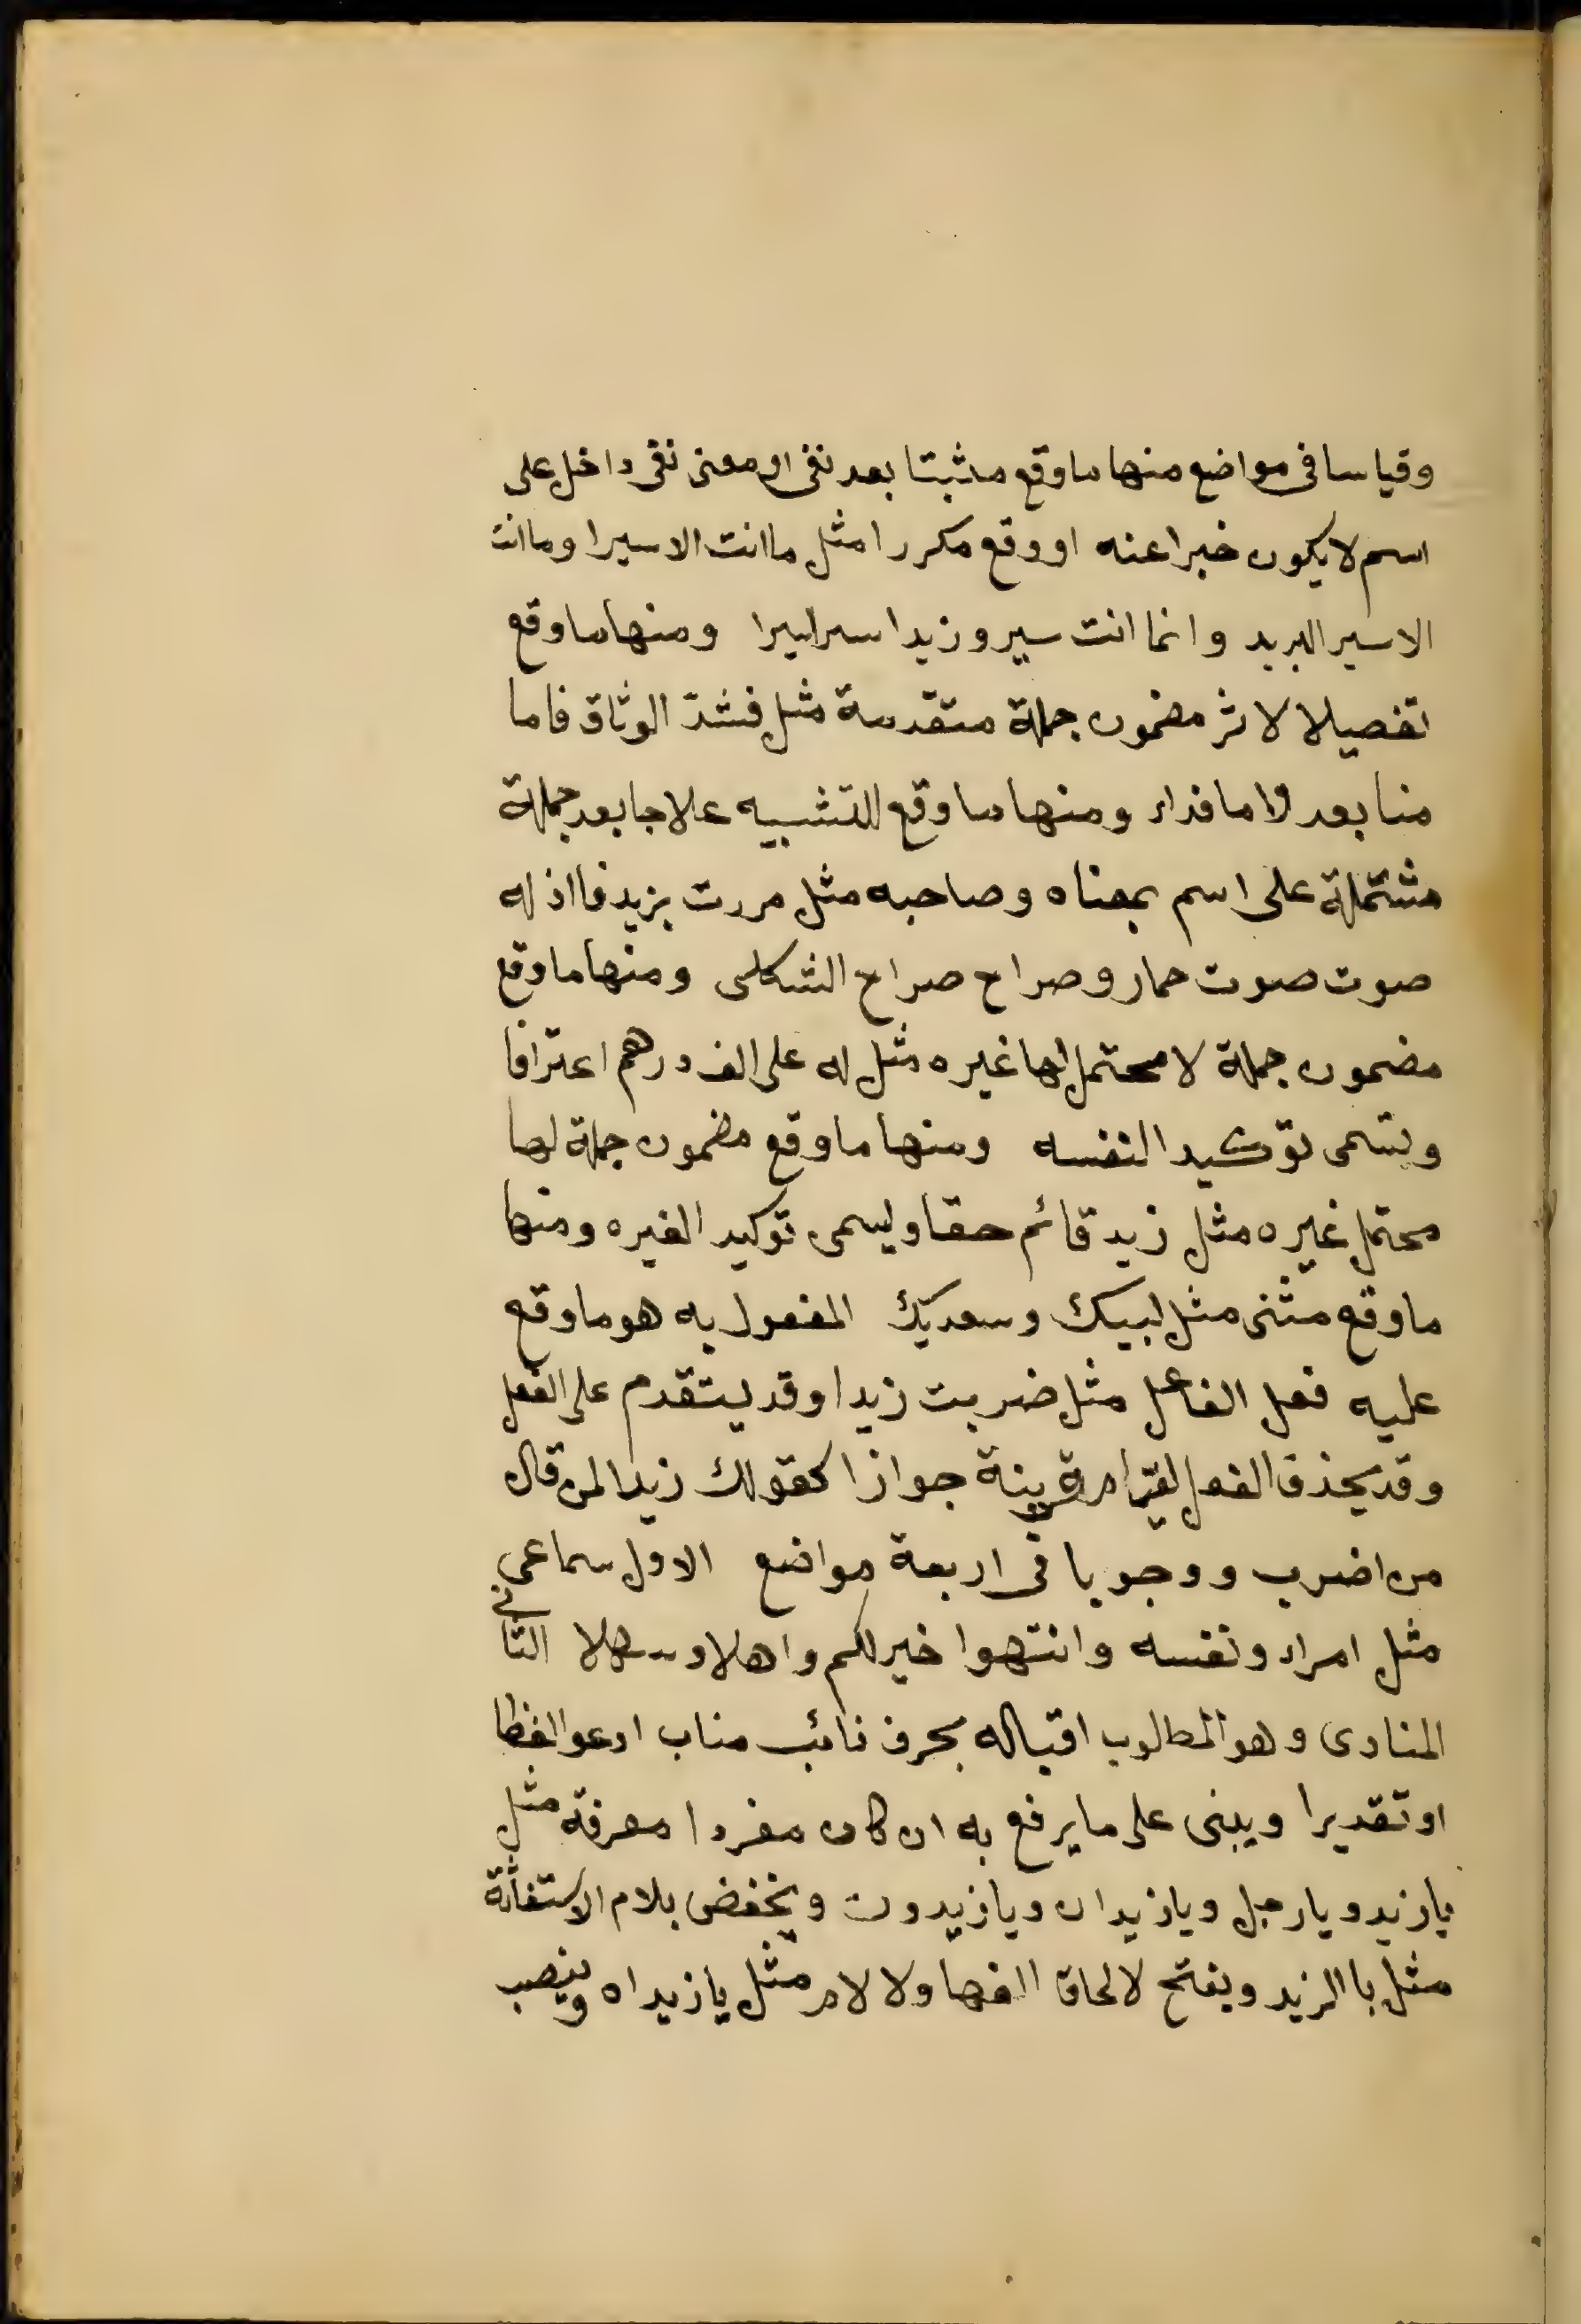 وقياسا فى مواضع منها ماوقع مثبتا بعد نفى او معنى نفى داخل على
اسم لا يكون خبرا عنه او وقع مكررا مثل ما انت الا سيرا وما انت
الا سير البريد وانما انت سير وزيدا سيرا سيرا ومنها ماوقع
تفصيلا لاثر مضمون جملة متقدمة مثل فشدّ الوثاق فاما
منا بعد واما فداء ومنها ماوقع للتشبيه علاجا بعد جملة
مشتملة على اسم بمعناه وصاحبه مثل مررت بزيد فااذ له
صوت صوت حمار وصراح صراح الشكلى ومنها ماوقع
مضمون جملة لا محتمل لها غيره مثل له على الف درهم اعترافا
ويسمى توكيد النفسه ومنها ماوقع مضمون جملة لها
محتمل غيره مثل زيد قائم حقا ويسمى توكيد الغيره ومنها
ماوقع مثنى مثل لبيك وسعديك المفعول به هو ماوقع
عليه فعل الفاعل مثل ضربت زيدا وقد يتقدم على الفعل
وقد يحذف الفعل جوازا كقولك زيدا لمن قال
من اضرب ووجوبا فى اربعة مواضع الاول سماعى
مثل امراء ونفسه وانتهوا خير لكم واهلا وسهلا الثانى
المنادى وهو المطلوب اقباله بحرف نائب مناب ادعو الفظا
او تقديرا ويبنى على ما يرفع به ان كان مفردا معرفة مثل
يا زيد ويا رجل ويا زيدان ويا زيدون ويخفض بلام الاستغاثة
مثل يا الزيد ويفتح لالحاق الفها ولا لام مثل يا زيداه وينصب